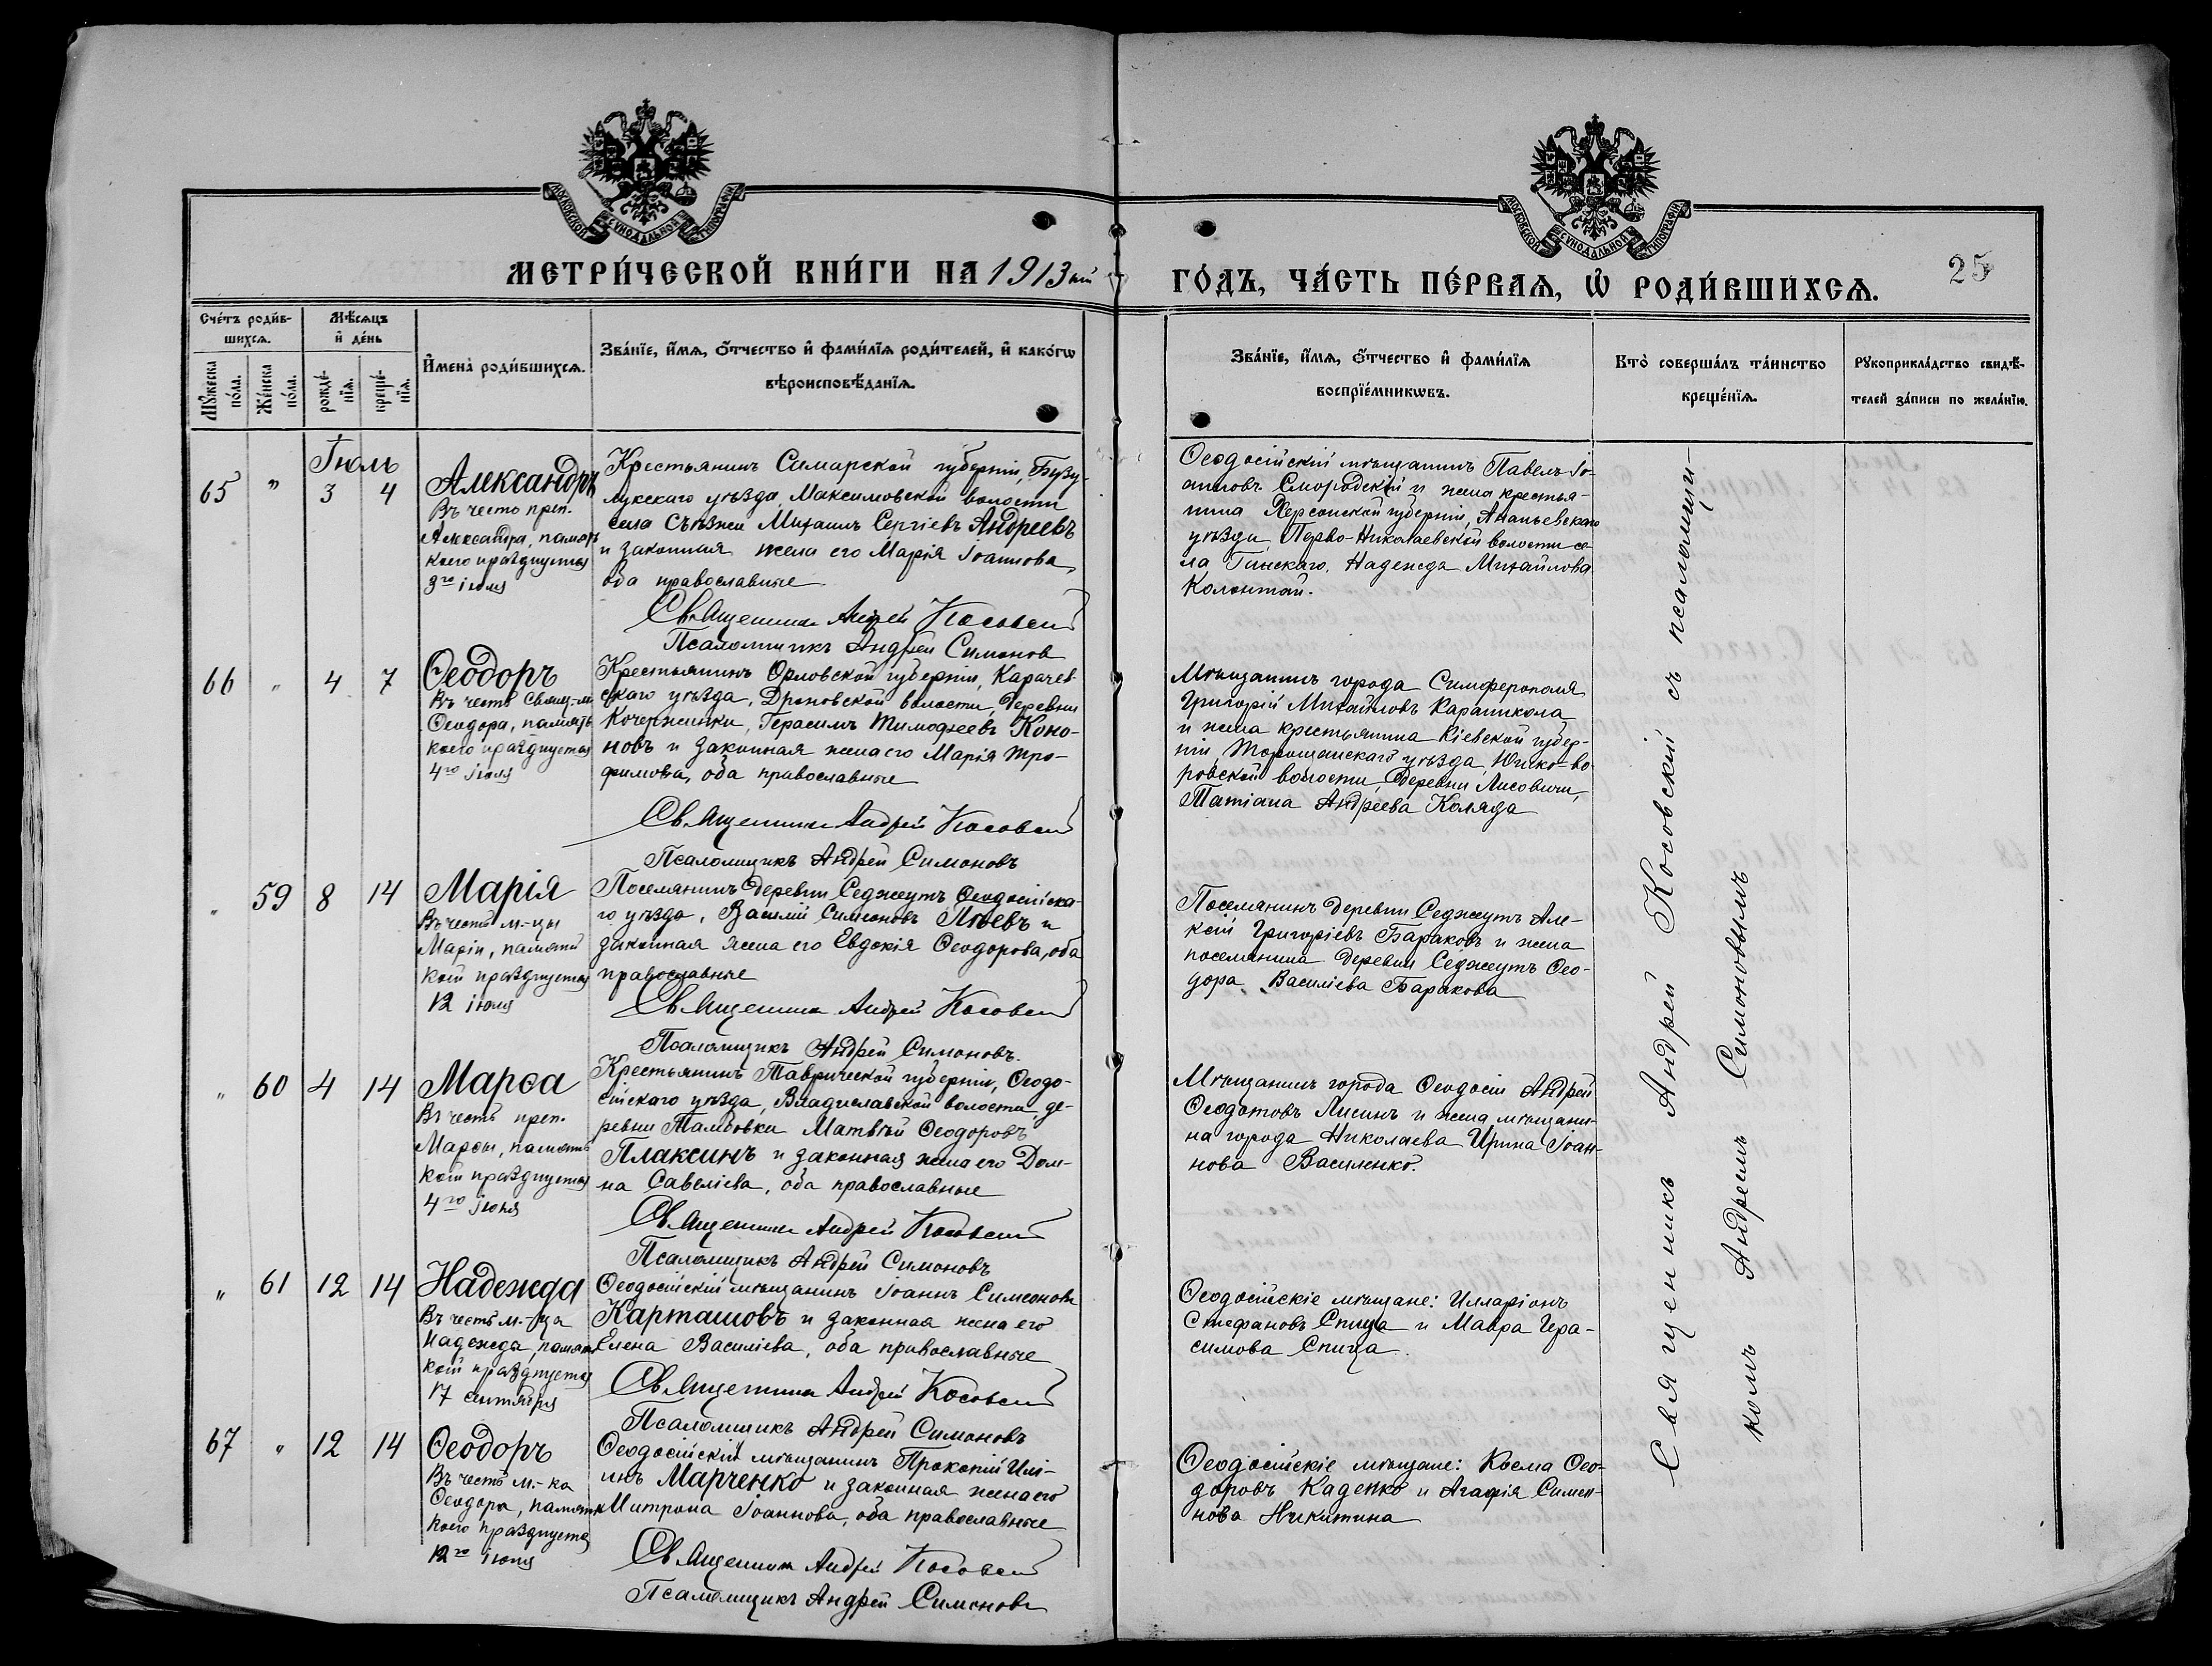 МОСКОВСКОЙ СѴНОДАЛЬНОЙ ТИПОГРАФІИ
МОСКОВСКОЙ СѴНОДАЛЬНОЙ ТИПОГРАФІИ
МЕТРИ́ЧЕСКОЙ КНИ́ГИ НА 1913 ый ГО́ДЪ, ЧА́СТЬ ПЕ́РВАѦ, Ѡ҆ РОДИ́ВШИХСѦ.
25
Сче́тъ роди́в-
шихсѧ.
Мѣ́сѧцъ
и҆ де́нь
Мꙋ́жеска по́ла.
Же́нска по́ла.
рожде́-нїѧ.
креще́-нїѧ.
И҆мена̀ роди́вшихсѧ.
Зва́нїе, и҆́мѧ, ѻ҆́тчество и҆ фами́лїѧ роди́телей, и҆ како́гѡ
вѣроисповѣ́данїѧ.
Зва́нїе, и҆́мѧ, ѻ҆́тчество и҆ фами́лїѧ
воспрїе́мникѡвъ.
Кто̀ соверша́лъ та́инство
креще́нїѧ.
Рꙋкоприкла́дство свидѣ́-
телей за́писи по жела́нїю.
Іюль
65 " 3 4
Александръ
Въ честь преп.
Александра, память
коего празднуется
3го іюля
Крестьянинъ Самарской губерніи, Бузу-
лукскаго уѣзда, Максимовской волости
села Съѣзжей Михаилъ Сергіевъ Андреевъ
и законная жена его Марія Іоаннова,
оба православные
Священникъ Андрей Косовскій
Псаломщикъ Андрей Симонов
Ѳеодосійскій мѣщанинъ Павелъ Іо-
анновъ Смородскій и жена крестья-
нина Херсонской губерніи, Ананьевскаго
уѣзда, Перво-Николаевской волости се-
ла Гинскаго, Надежда Михайлова
Колонтай.
66 " 4 7
Ѳеодоръ
Въ честь Свящ.-м.
Ѳеодора, память
коего празднуется
4го Іюля
Крестьянинъ Орловской губерніи, Карачев-
скаго уѣзда, Дроновской волости, деревни
Кочержинки, Герасимъ Тимофеевъ Коно-
новъ и законная жена его Марія Тро-
фимова, оба православные
Священникъ Андрей Косовскій
Псаломщикъ Андрей Симоновъ
Мѣщанинъ города Симферополя
Григорій Михайловъ Караникола
и жена крестьянина Кіевской губер-
ніи Таращанскаго уѣзда,
ровской волости, деревни Лисовичи,
Татіана Андреева Коляда
" 59 8 14
Марія
Въ честь м.-цы
Маріи, память
коей празднуется
12 іюля
Поселянинъ деревни Седжеутъ Ѳеодосійска-
го уѣзда, Василій Симеоновъ и
законная жена его Евдокія Ѳеодорова, оба
православные
Священникъ Андрей Косовскій
Псаломщикъ Андрей Симоновъ.
Поселянинъ деревни Седжеутъ Але-
ксій Григоріевъ Бараковъ и жена
поселянина деревни Седжеутъ Ѳео-
дора Василіева Баракова
" 60 4 14
Марѳа
Въ честь преп.
Марѳы, память
коей празднуется
4го Іюля
Крестьянинъ Таврической губерніи, Ѳеодо-
сійскаго уѣзда, Владиславской волости, де-
ревни Тамбовки Матвѣй Ѳеодоровъ
Плаксинъ и законная жена его Дом-
на Савеліева, оба православные
Священникъ Андрей Косовскій
Псаломщикъ Андрей Симоновъ
Мѣщанинъ города Ѳеодосіи Андрей
Ѳеодотовъ Лисинъ и жена мѣщани-
на города Николаева Ирина Іоан-
нова Василенко.
" 61 12 14
Надежда
Въ честь м.-ца
Надежды, память
коей празднуется
17 сентября
Ѳеодосійскій мѣщанинъ Іоаннъ Симеоновъ
Карташовъ и законная жена его
Елена Василіева, оба православные
Священникъ Андрей Косовскій
Псаломщикъ Андрей Симоновъ
Ѳеодосійскіе мѣщане: Илларіонъ
Стефановъ Спица и Мавра Гера-
симова Спица.
67 " 12 14
Ѳеодоръ
Въ честь м.-ка
Ѳеодора, память
коего празднуется
12го іюля
Ѳеодосійскій мѣщанинъ Прокопій Илі-
инъ Марченко и законная жена его
Митрона Іоаннова, оба православные
Священникъ Андрей Косовскій
Псаломщикъ Андрей Симоновъ
Ѳеодосійскіе мѣщане: Косма Ѳео-
доровъ Каденко и Агафія Симео-
нова Никитина
Священникъ Андрей Косовскій съ псаломщи-
комъ Андреемъ Симоновымъ